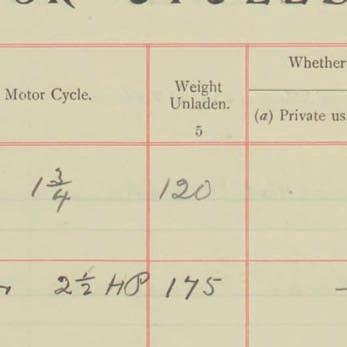 Whether
Motor Cycle.
Weight
Unladen.
(a) Private us
5
1 3/4
120
2 1/2 HP
175